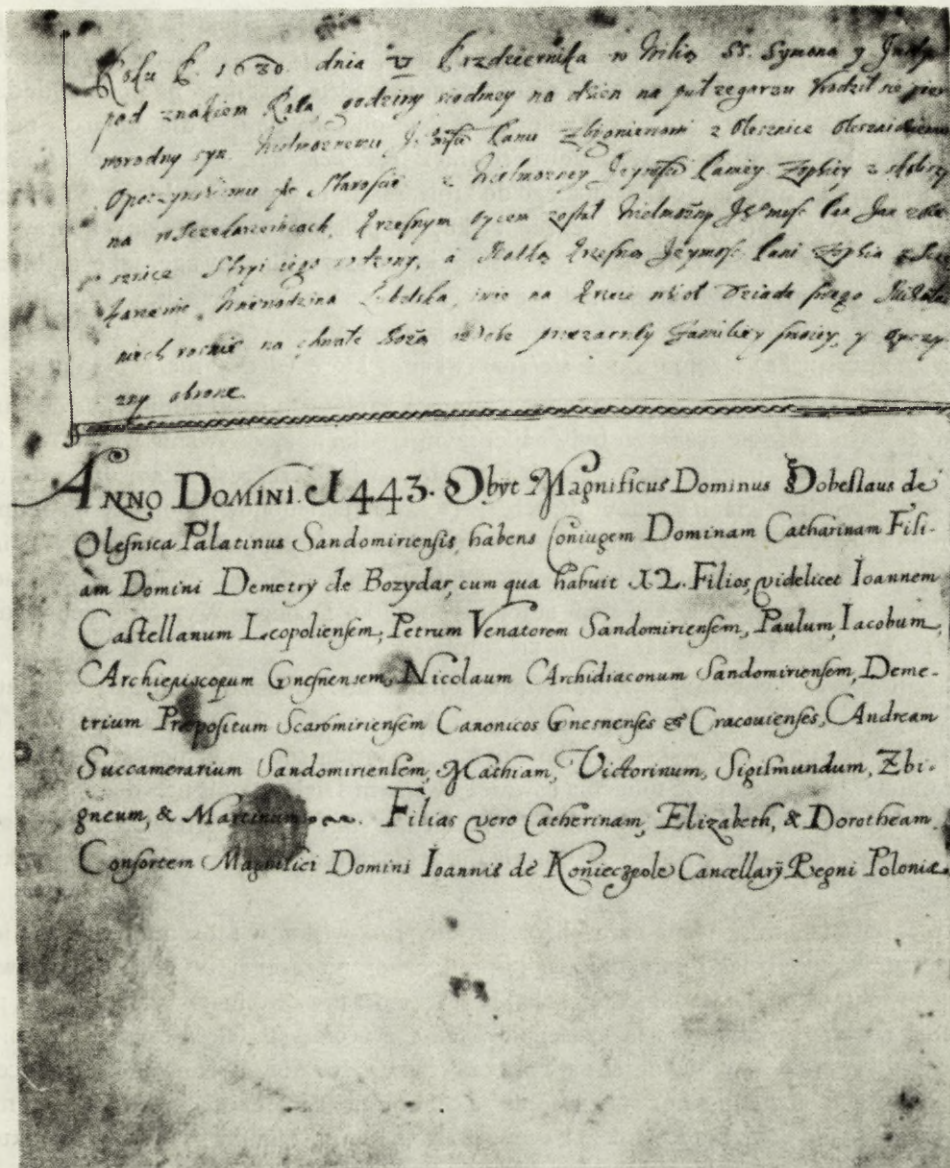 Roku P. 1630. dnia Przdziernika w Wilią SS. Symona y Judy
pod znakiem godziny siodmey na dzien na puł zegarzu Vrodził się pier
worodny syn Wielmoznemu Panu Zbigniewowi z Olesnice
Opoczynskiemu Staroscie z Wielmozney Jeymsći Paniey Zophiey z
na krzesnym oycem został Wielmożny Je°mosć Pan Jan z Ole
sznice Stryi iego rodzony, á Matką krzesną Jeymość Pani Zophia
Lubelska, imie na krzcie wźioł Dziada swego Mikołai
niech roscie na chwałe Bożą przezacnÿ Familiey swoiey, y oyczy
zny obrone.
ANNO DOMINI. 1443. Obÿt Magnificus Dominus Dobeslaus de
Olesnica Palatinus Sandomiriensis, habens Coniugem Dominam Catharinam Fili-
am Domini Demetrÿ de Bozydar, cum qua habuit Filios, videlicet Ioannem
Castellanum Leopoliensem, Petrum Venatorem Sandomiriensem, Paulum, Iacobum,
Archiepiscopum Gnesnensem, Nicolaum Archidiaconum Sandomiriensem, Deme-
trium Præpositum Scarbimiriensem Canonicos Gnesnenses & Cracouienses, Andream
Succamerarium Sandomiriensem, Mathiam, Victorinum, Sigismundum, Zbi-
gneum, & Martinum. Filias vero Catherinam, Elizabeth, & Dorotheam
Consortem Magnifici Domini Ioannis de Konieczpole Cancellarÿ Regni Poloniæ.